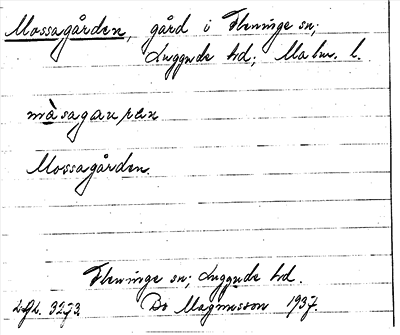 Mossagården, gård i Fleninge sn;
Luggude hd; Malm. l.
màsagauren
Mossagården.
Fleninge sn; Luggude hd.
Bo Magnusson 1937.